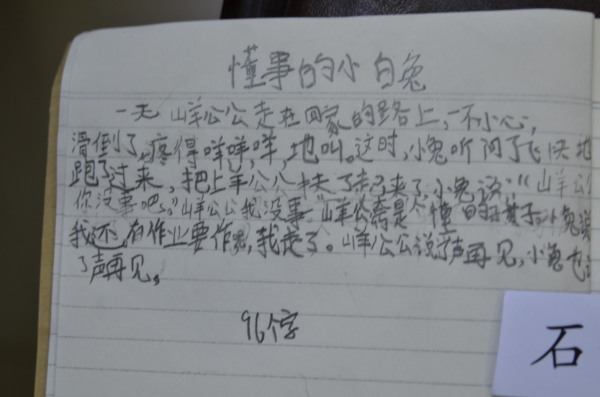 懂事的小白兔
一天山羊公公走在回家的路上,一不小心,
滑倒了,疼得咩咩,咩,地叫。这时,小兔听间了飞快地
跑了过来,把山羊公公扶了起来了,小兔说:"山羊公
你没事吧。"山羊公公我没事"山羊公 是个懂的孩子小兔说
我还,有作业要作,我走了。山羊公公说了声再见,小兔也
了声再见。
96个字
石